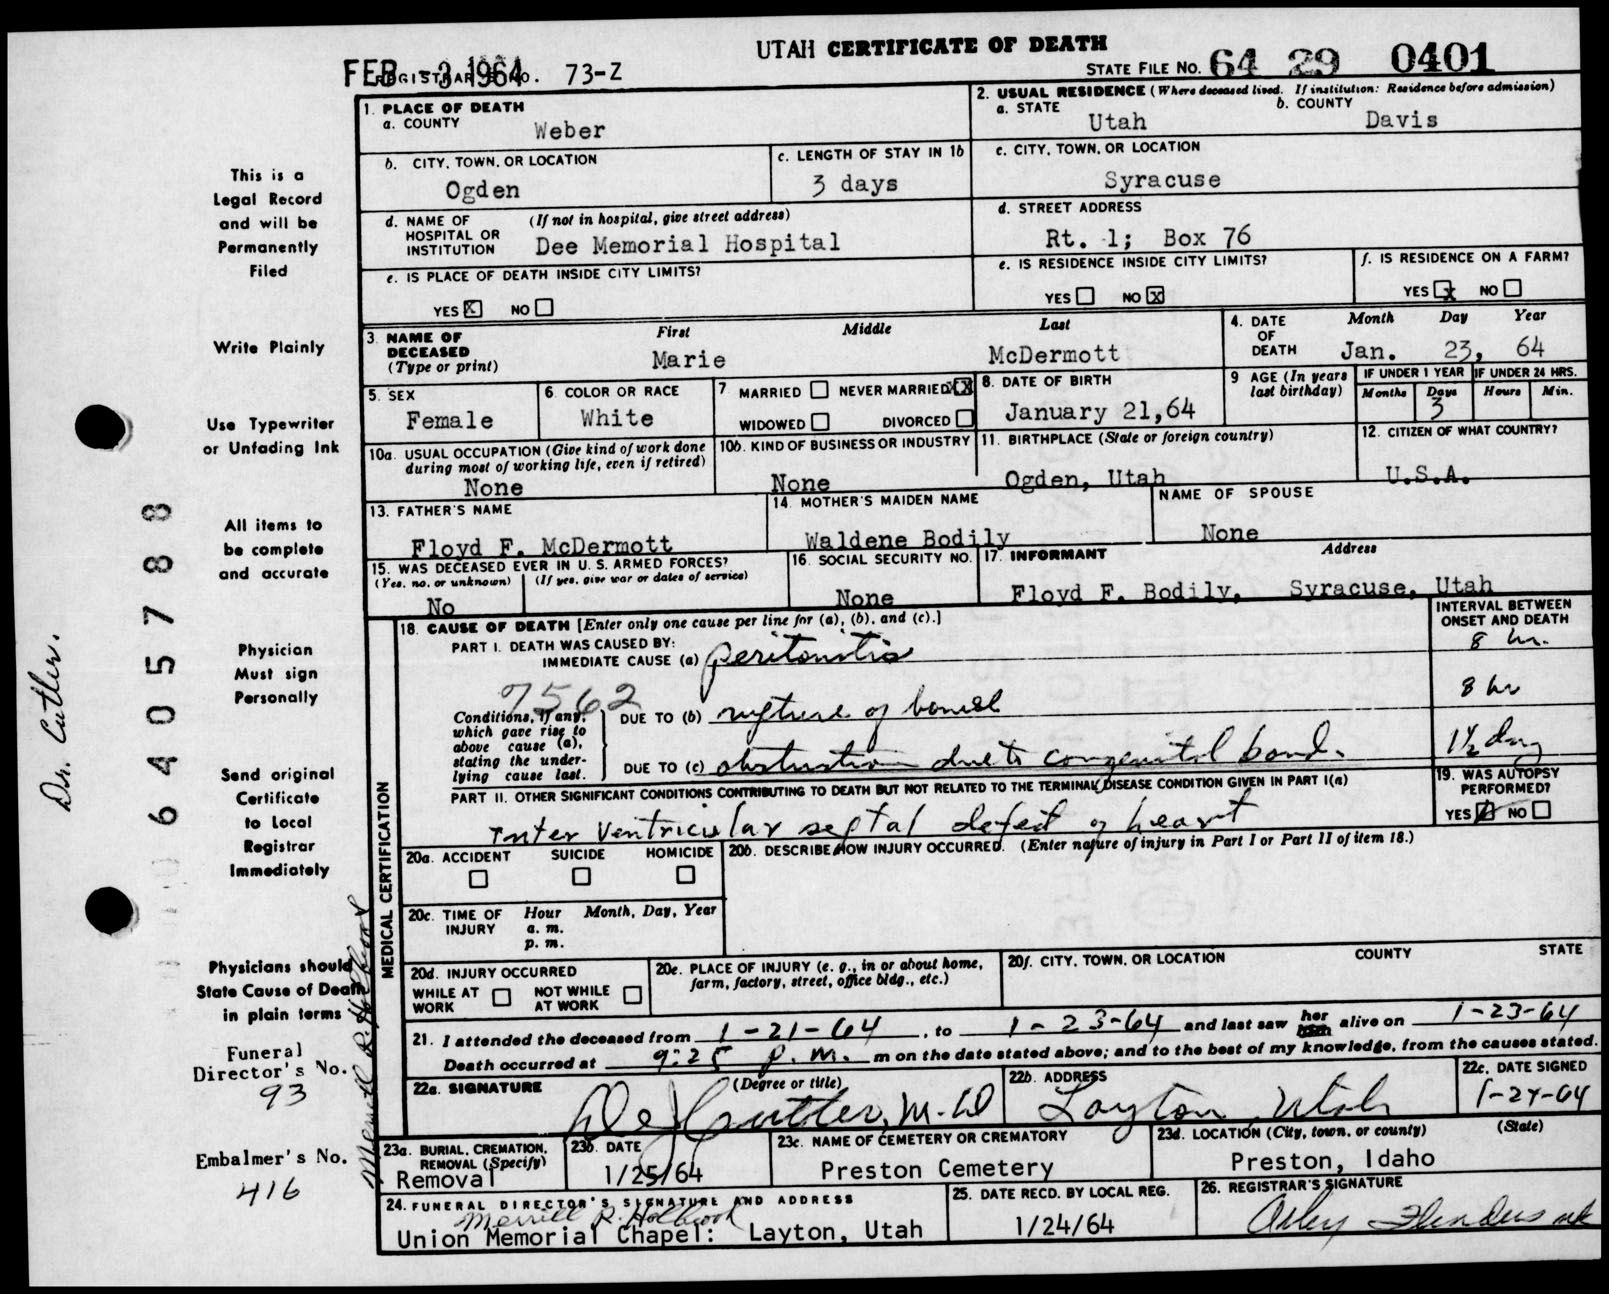 UTAH CERTIFICATE OF DEATH
FEB -3 1964
REGISTRAR'S NO. 73-Z
STATE FILE NO. 64 29 0401
1. PLACE OF DEATH
a. COUNTY
Weber
2. USUAL RESIDENCE (Where deceased lived. If institution: Residence before admission)
a. STATE
Utah
b. COUNTY
Davis
b. CITY, TOWN, OR LOCATION
Ogden
c. LENGTH OF STAY IN 1b
3 days
c. CITY, TOWN, OR LOCATION
Syracuse
d. NAME OF HOSPITAL OR INSTITUTION
(If not in hospital, give street address)
Dee Memorial Hospital
d. STREET ADDRESS
Rt. 1; Box 76
e. IS PLACE OF DEATH INSIDE CITY LIMITS?
YES X NO
e. IS RESIDENCE INSIDE CITY LIMITS?
YES NO X
f. IS RESIDENCE ON A FARM?
YES X NO
3. NAME OF DECEASED
(Type or print)
First Middle Last
Marie McDermott
4. DATE OF DEATH
Month Day Year
Jan. 23, 64
5. SEX
Female
6. COLOR OR RACE
White
7. MARRIED NEVER MARRIED XX
WIDOWED DIVORCED
8. DATE OF BIRTH
January 21,64
9 AGE (In years last birthday)
IF UNDER 1 YEAR
Months Days
3
IF UNDER 24 HRS.
Hours Min.
10a. USUAL OCCUPATION (Give kind of work done during most of working life, even if retired)
None
10b. KIND OF BUSINESS OR INDUSTRY
None
11. BIRTHPLACE (State or foreign country)
Ogden, Utah
12. CITIZEN OF WHAT COUNTRY?
U.S.A.
13. FATHER'S NAME
Floyd F. McDermott
14. MOTHER'S MAIDEN NAME
Waldene Bodily
NAME OF SPOUSE
None
15. WAS DECEASED EVER IN U. S. ARMED FORCES?
(Yes, no, or unknown) (If yes, give war or dates of service)
No
16. SOCIAL SECURITY NO.
None
17. INFORMANT Address
Floyd F. Bodily, Syracuse, Utah
MEDICAL CERTIFICATION
18. CAUSE OF DEATH [Enter only one cause per line for (a), (b), and (c).]
INTERVAL BETWEEN ONSET AND DEATH
PART I. DEATH WAS CAUSED BY:
IMMEDIATE CAUSE (a) peritonitis
8 hr.
7562
Conditions, if any, which gave rise to above cause (a), stating the underlying cause last.
DUE TO (b) rupture of bowel
8 hr
DUE TO (c) obstruction due to congenital band.
1½ day
PART II. OTHER SIGNIFICANT CONDITIONS CONTRIBUTING TO DEATH BUT NOT RELATED TO THE TERMINAL DISEASE CONDITION GIVEN IN PART I(a)
Inter ventricular septal defect of heart
19. WAS AUTOPSY PERFORMED?
YES NO
20a. ACCIDENT SUICIDE HOMICIDE
20b. DESCRIBE HOW INJURY OCCURRED. (Enter nature of injury in Part I or Part II of item 18.)
20c. TIME OF INJURY
Hour Month, Day, Year
a. m.
p. m.
20d. INJURY OCCURRED
WHILE AT WORK NOT WHILE AT WORK
20e. PLACE OF INJURY (e. g., in or about home, farm, factory, street, office bldg., etc.)
20f. CITY, TOWN, OR LOCATION COUNTY STATE
21. I attended the deceased from 1-21-64, to 1-23-64 and last saw her him alive on 1-23-64
Death occurred at 9:25 p.m. m on the date stated above; and to the best of my knowledge, from the causes stated.
22a. SIGNATURE (Degree or title)
Cutler, M.D
22b. ADDRESS
Layton, Utah
22c. DATE SIGNED
1-24-64
23a. BURIAL, CREMATION, REMOVAL (Specify)
Removal
23b. DATE
1/25/64
23c. NAME OF CEMETERY OR CREMATORY
Preston Cemetery
23d. LOCATION (City, town, or county) (State)
Preston, Idaho
24. FUNERAL DIRECTOR'S SIGNATURE AND ADDRESS
Merrill R. Holbrook
Union Memorial Chapel: Layton, Utah
25. DATE RECD. BY LOCAL REG.
1/24/64
26. REGISTRAR'S SIGNATURE
This is a
Legal Record
and will be
Permanently
Filed
Write Plainly
Use Typewriter
or Unfading Ink
All items to
be complete
and accurate
Physician
Must sign
Personally
Send original
Certificate
to Local
Registrar
Immediately
Physicians should
State Cause of Death
in plain terms
Funeral
Director's No.
93
Embalmer's No.
416
Merrill R. Holbrook
6405788
Dr. Cutler.